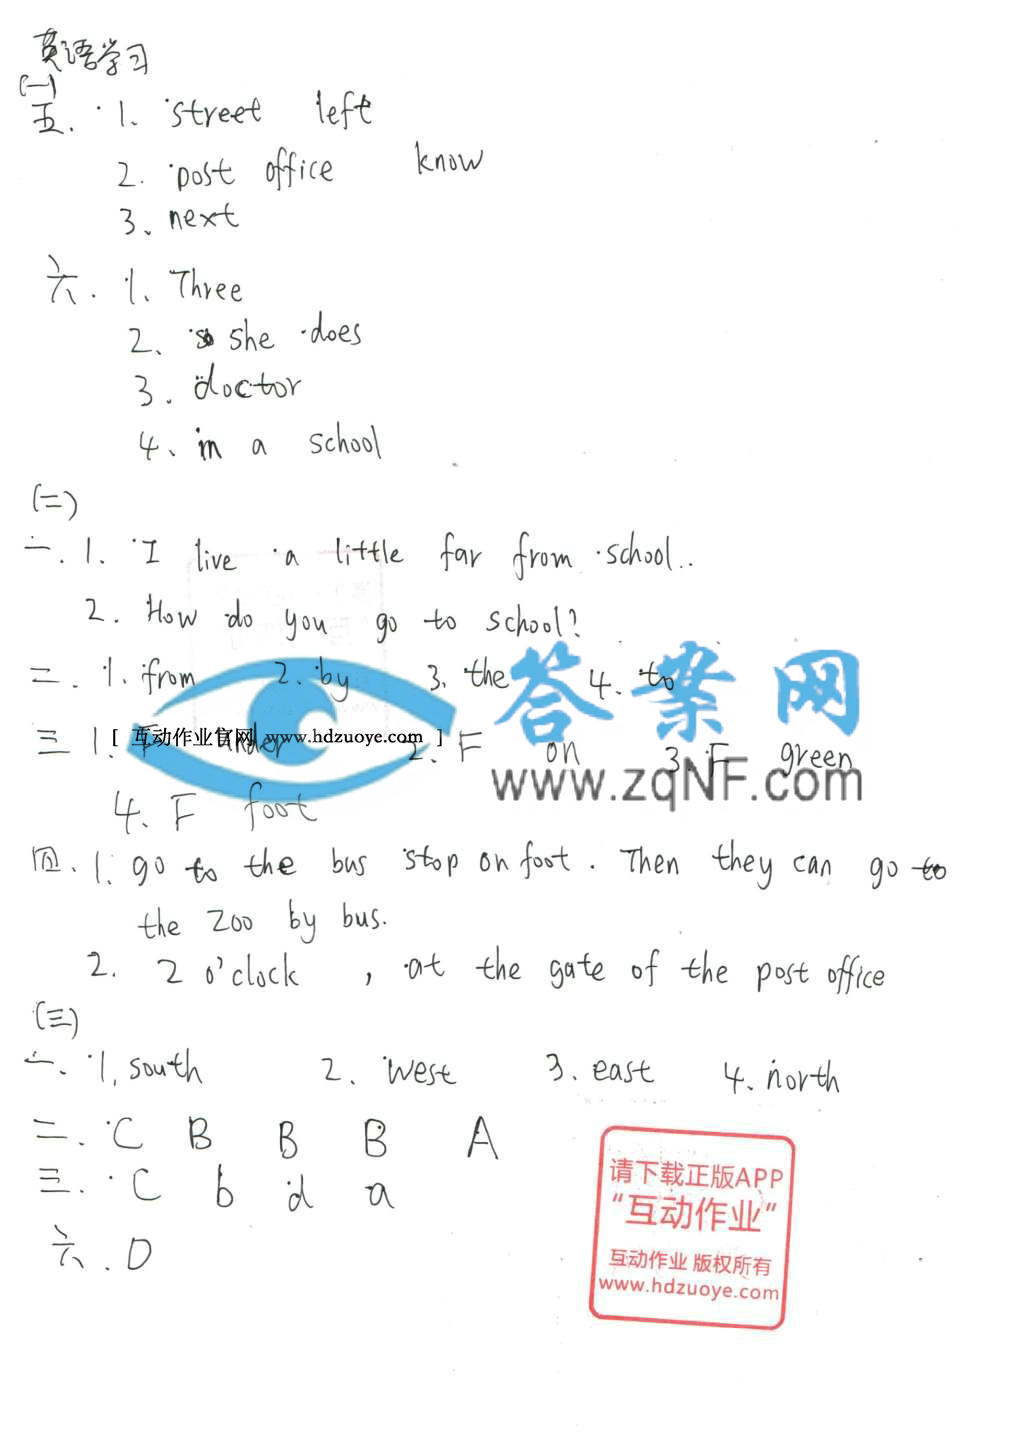 英语学习
(一)
五. 1. street left
2. post office know
3. next
六. 1. Three
2. she does
3. doctor
4. in a school
(二)
一. 1. I live a little far from school..
2. How do you go to school?
二. 1. from 2. by 3. the 4. to
答案网
三 1. under 2. F on 3. F green
[ 互动作业官网 www.hdzuoye.com ]
www.zqNF.com
4. F foot
四. 1. go to the bus stop on foot. Then they can go to
the zoo by bus.
2. 2 o'clock , at the gate of the post office
(三)
一. 1. south 2. west 3. east 4. north
二. C B B B A
三. C b d a
六. D
请下载正版APP
"互动作业"
互动作业 版权所有
www.hdzuoye.com